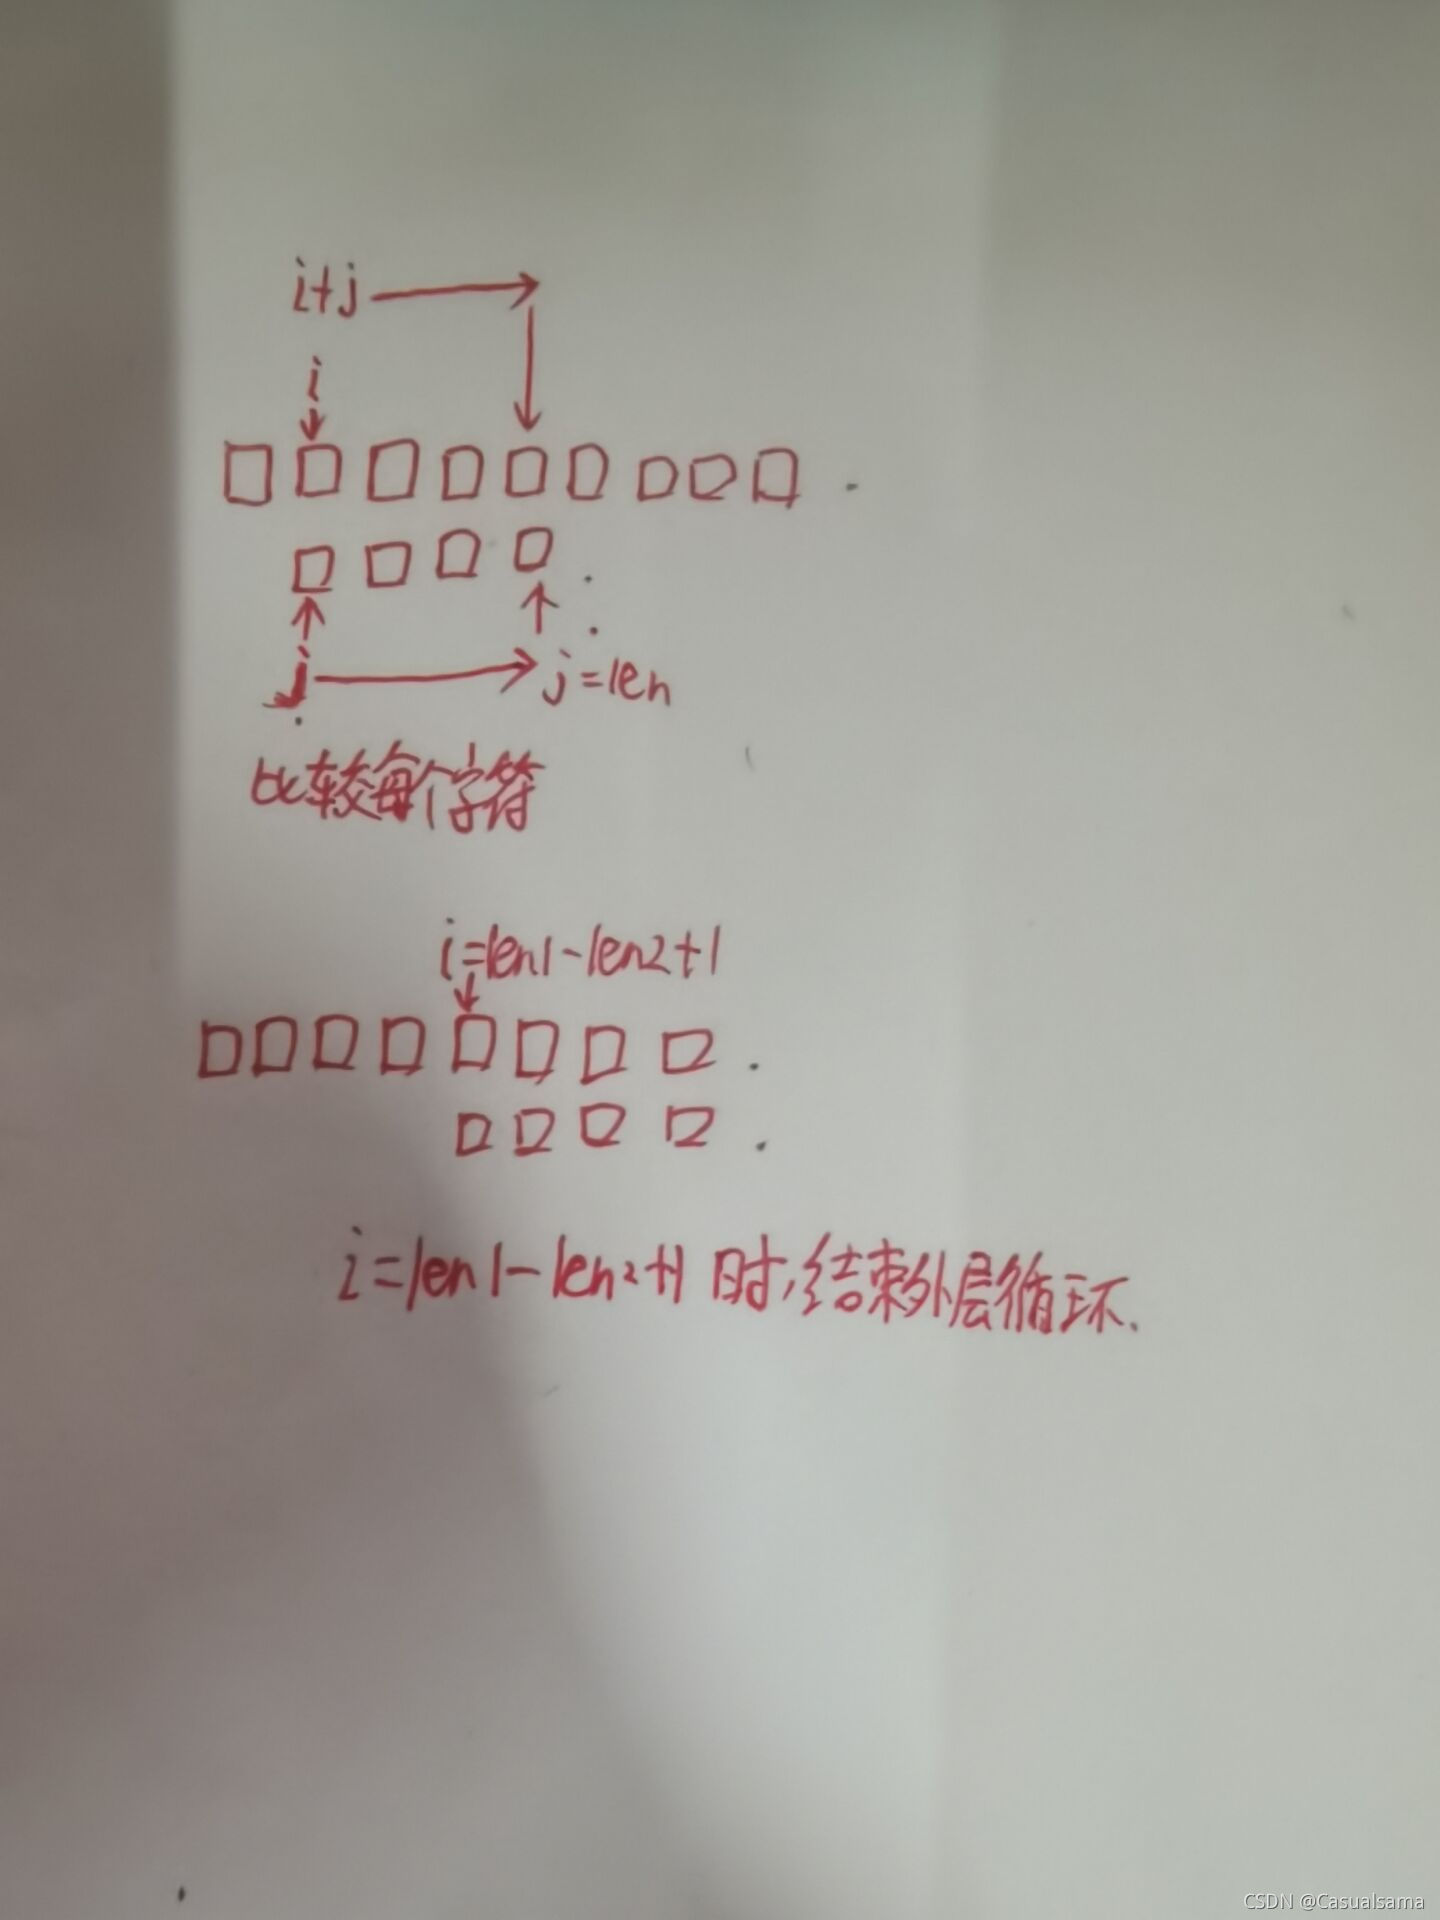 i+j
i
j
j=len
比较每个字符
i=len1-len2+1
i=len1-len2+1时,结束外层循环.
CSDN @Casualsama